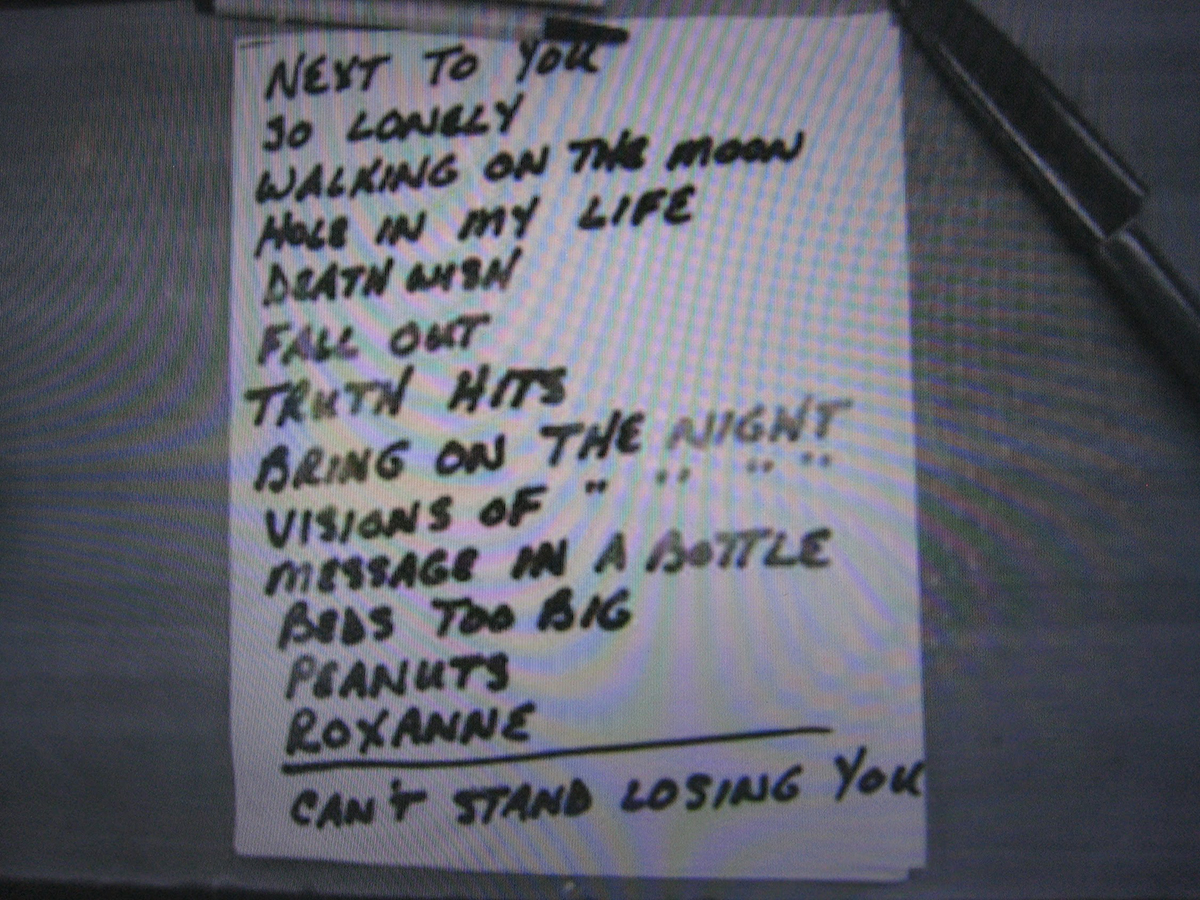 NEXT TO YOU
SO LONELY
WALKING ON THE MOON
HOLE IN MY LIFE
DEATH WISH
FALL OUT
TRUTH HITS
BRING ON THE NIGHT
VISIONS OF " " " "
MESSAGE IN A BOTTLE
BEDS TOO BIG
PEANUTS
ROXANNE
CAN'T STAND LOSING YOU